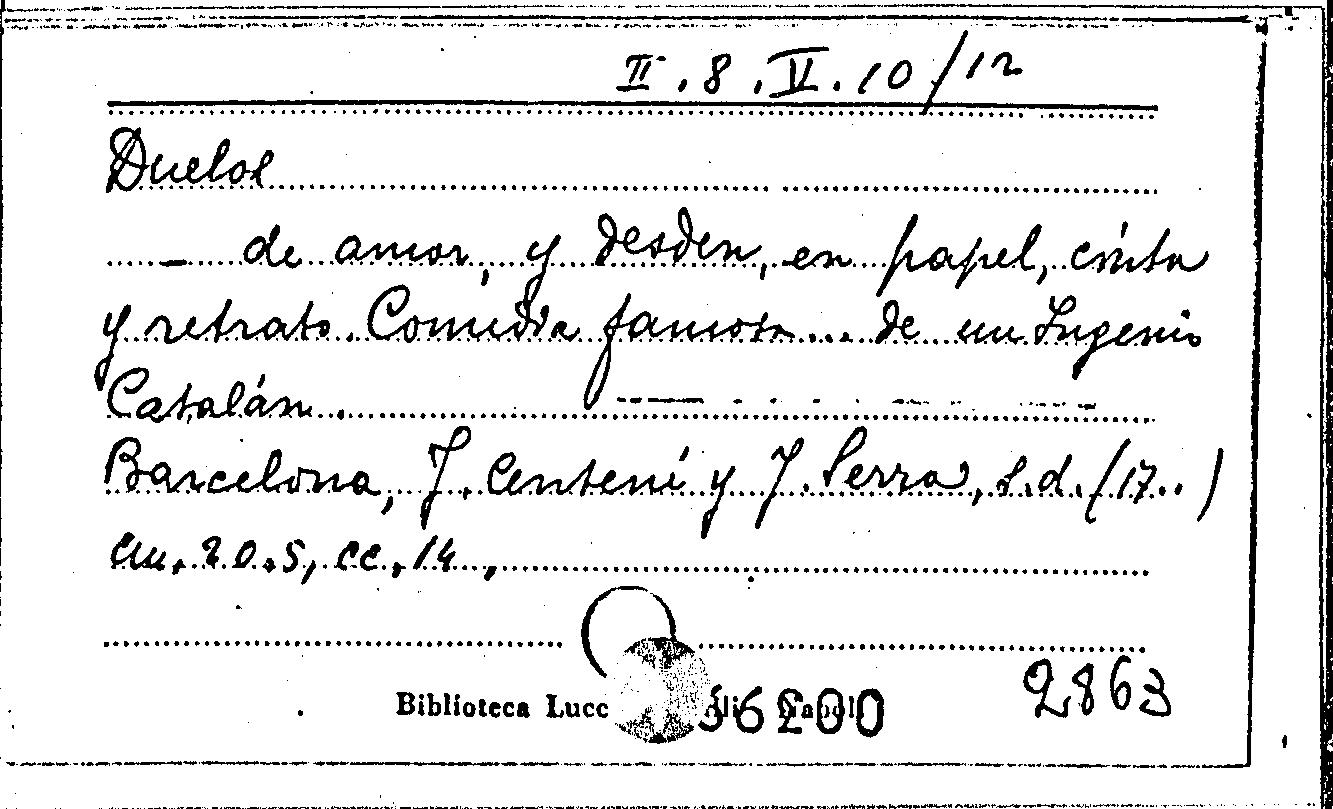 II.8.VI.10/12
Duelos
_ de amor, y desden, en papel, cinta
y retrato. Comedia famosa... de un Ingenio
Catalán.
Barcelona, J. Centené y J. Serra, s.d. (17..)
cm. 20.5, cc. 14,
Biblioteca
2863